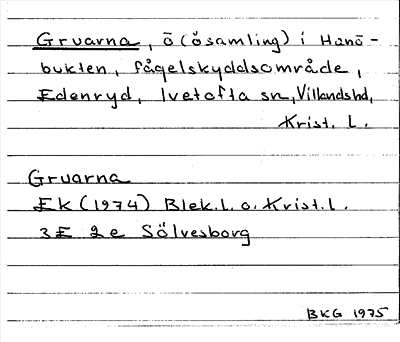 Gruarna, ö (ösamling) i Hanö-
bukten, fågelskyddsområde,
Edenryd, Ivetofta sn, Villands hd,
Krist. l.
Gruarna
Ek (1974) Blek. l. o. Krist. l.
3E 2e Sölvesborg
BKG 1975